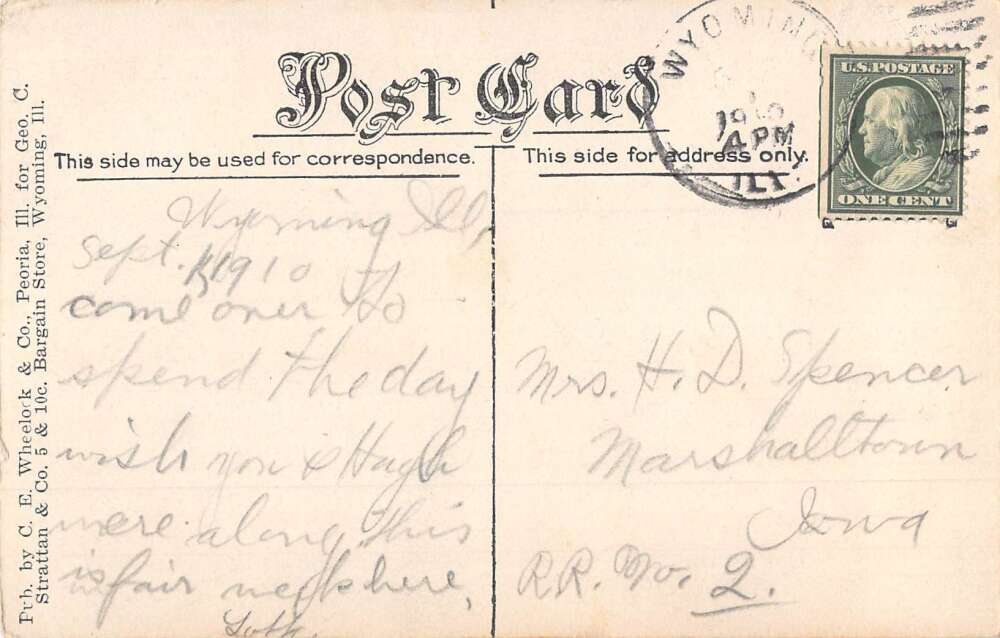 Pub. by C. E. Wheelock & Co., Peoria, Ill. for Geo. C.
Strattan & Co. 5 & 10c. Bargain Store, Wyoming, Ill.
Post Card
This side may be used for correspondence.
This side for address only.
WYOMING
1910
4 PM
ILL.
U.S. POSTAGE
ONE CENT
Wyoming Ill,
Sept. 1910
come over to
spend the day
wish you & Hugh
were along this
is fair week here,
Mrs. H. D. Spencer
Marshalltown
Iowa
R.R. No. 2.